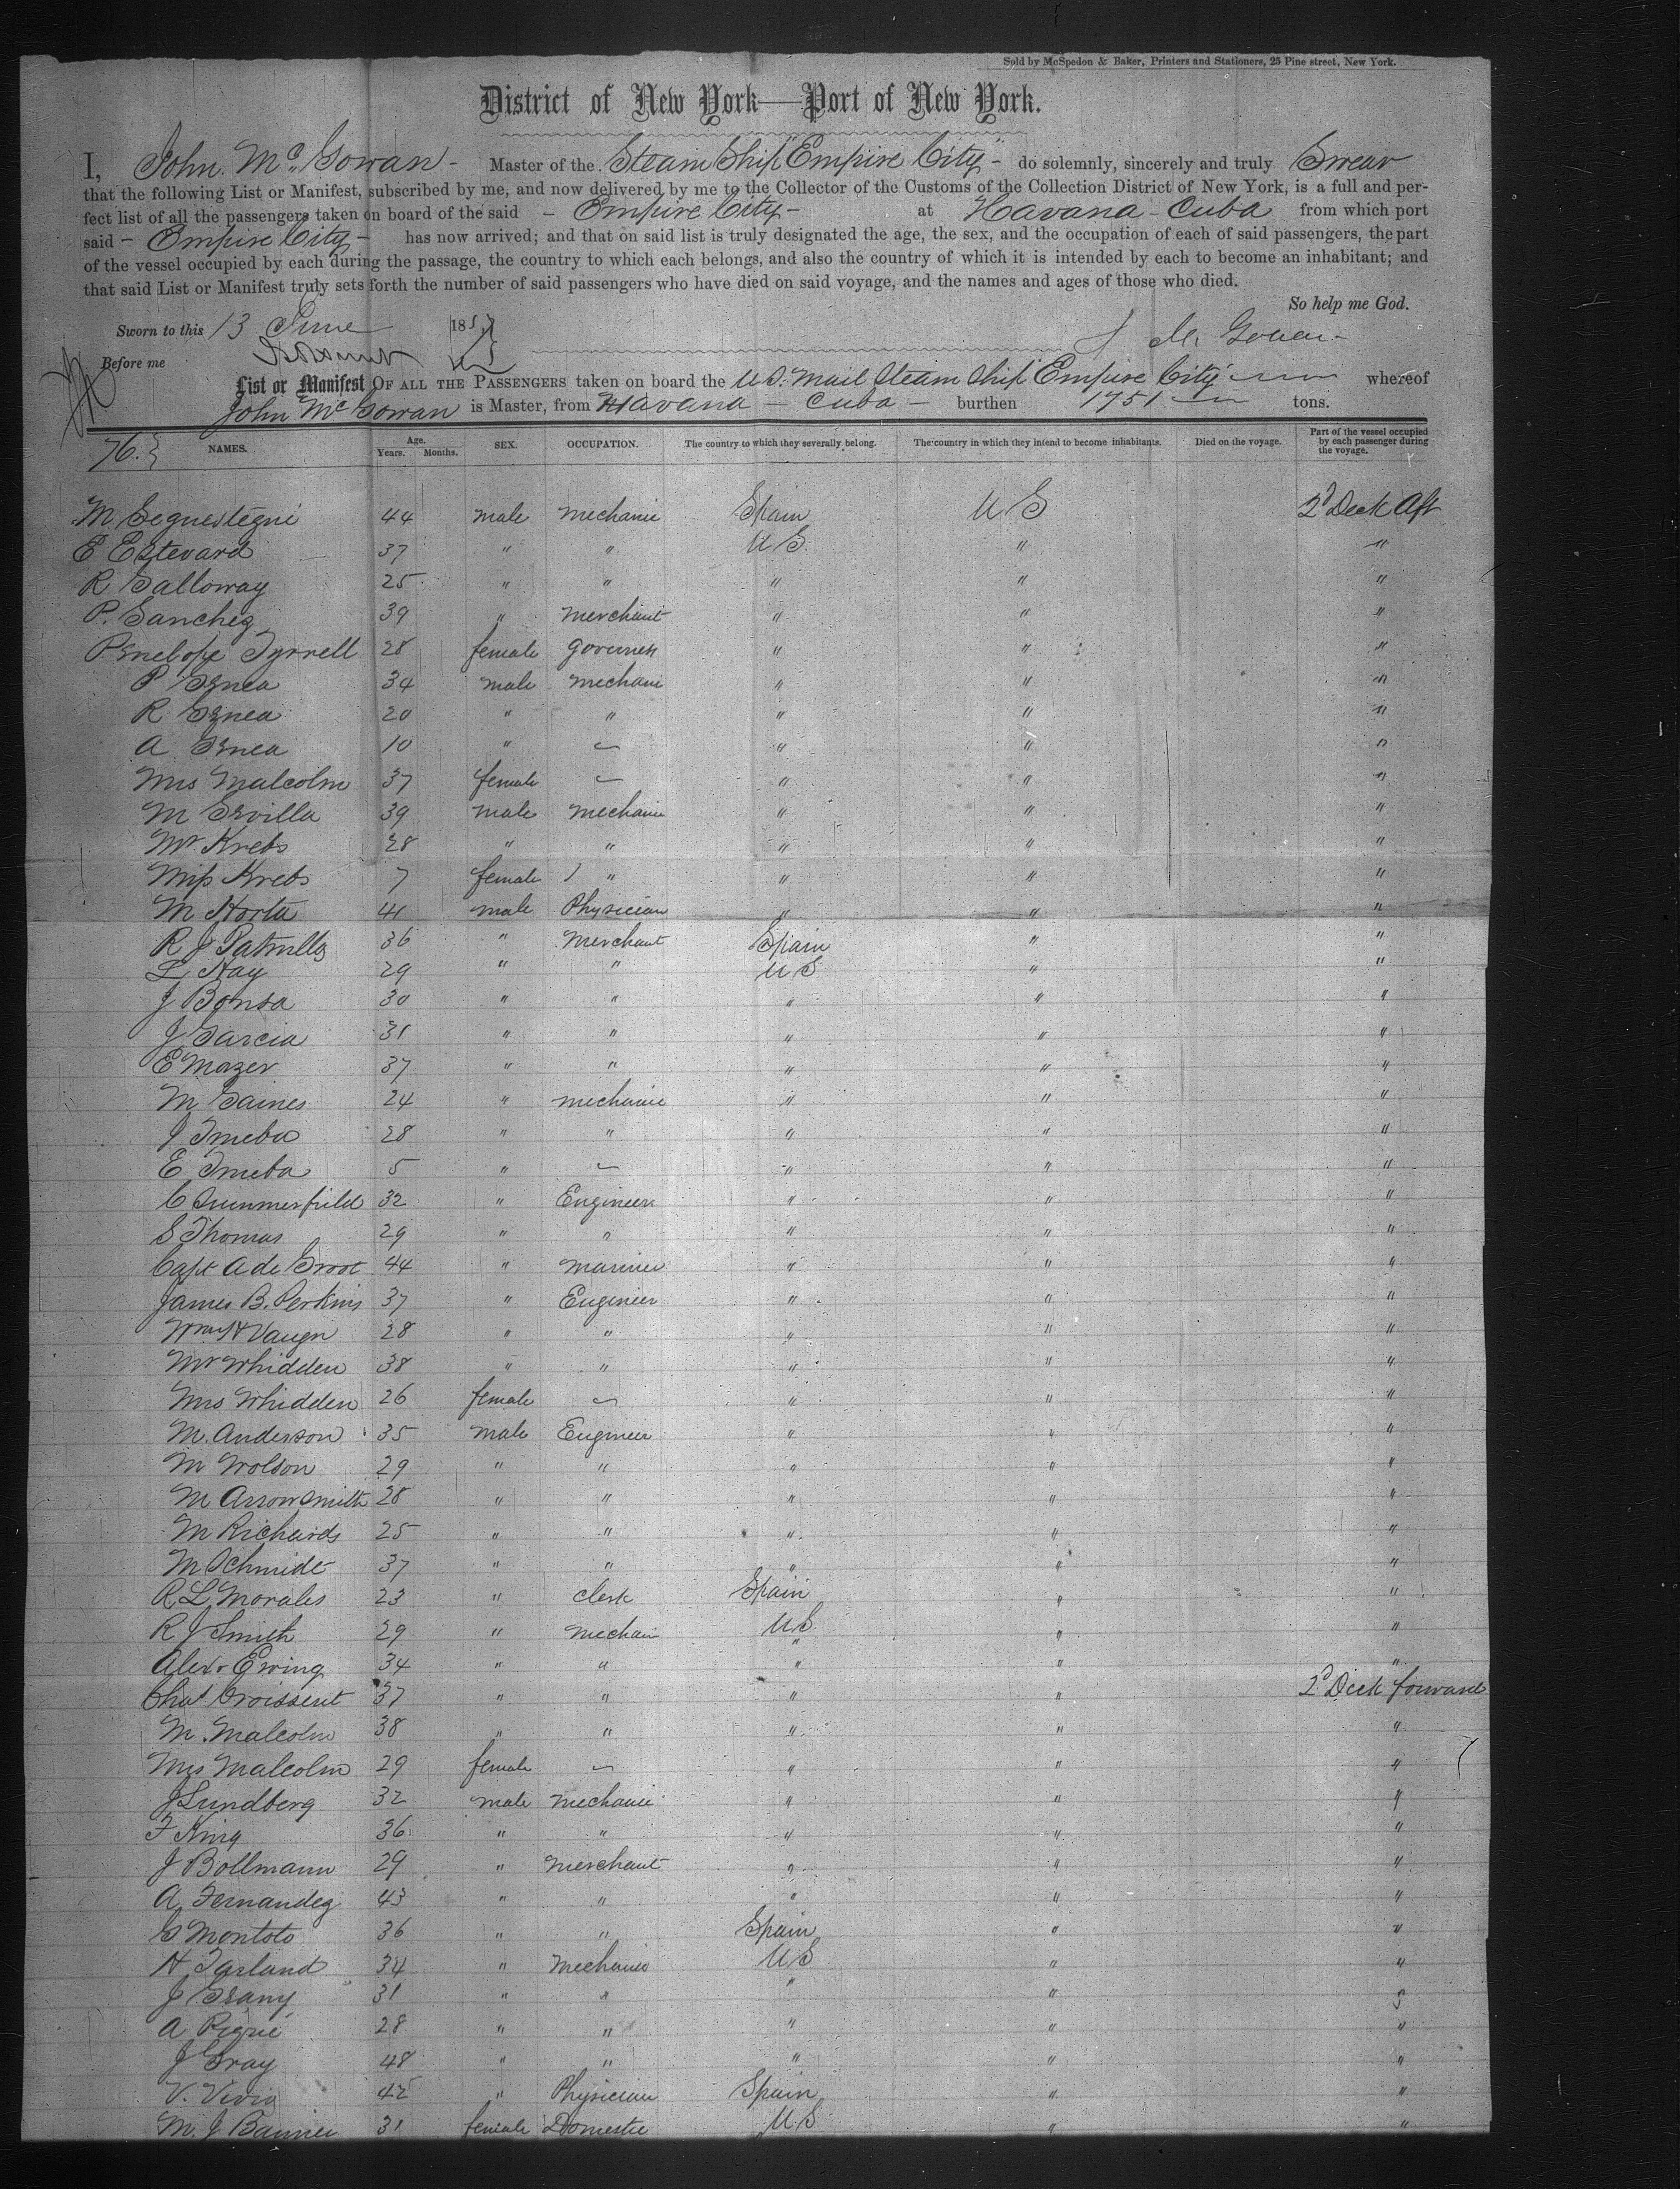 Sold by McSpedon & Baker, Printers and Stationers, 25 Pine street, New York.
District of New York—Port of New York.
I, John Mc Gowan - Master of the Steam Ship "Empire City" - do solemnly, sincerely and truly Swear
that the following List or Manifest, subscribed by me, and now delivered by me to the Collector of the Customs of the Collection District of New York, is a full and per-
fect list of all the passengers taken on board of the said - Empire City - at Havana - Cuba from which port
said - Empire City - has now arrived; and that on said list is truly designated the age, the sex, and the occupation of each of said passengers, the part
of the vessel occupied by each during the passage, the country to which each belongs, and also the country of which it is intended by each to become an inhabitant; and
that said List or Manifest truly sets forth the number of said passengers who have died on said voyage, and the names and ages of those who died.
So help me God.
Sworn to this 13 June 185
J Mc Gowan
Before me
List or Manifest OF ALL THE PASSENGERS taken on board the U.S. Mail Steam Ship Empire City whereof
John Mc Gowan is Master, from Havana - Cuba - burthen 1751 tons.
76 NAMES. Age. Years. Months. SEX. OCCUPATION. The country to which they severally belong. The country in which they intend to become inhabitants. Died on the voyage. Part of the vessel occupied by each passenger during the voyage.
M 44 male mechanic Spain U S 2d Deck Aft
E Estevard 37 " " U S. " "
R Galloway 25 " " " " "
P. Sanchez 39 " merchant " " "
Penelope Tyrrell 28 female governess " " "
P 34 male mechani " " "
R 20 " " " " "
A 10 " — " " "
Mrs Malcolm 37 female — " " "
M Servilla 39 male mechanic " " "
Mr Krebs 28 " " " " "
Miss Krebs 7 female " " " "
M Horta 41 male Physician " " "
R J 36 " Merchant Spain " "
L Hay 29 " " U S " "
J Bonsa 30 " " " " "
J Garcia 31 " " " " "
E Mazer 37 " " " " "
M Gaines 24 " mechanic " " "
J 28 " " " " "
E 5 " — " " "
C Summerfield 32 " Engineer " " "
S Thomas 29 " " " " "
Capt A de Groot 44 " Mariner " " "
James B. Perkins 37 " Engineer " " "
Wm H Vaugn 28 " " " " "
Mr Whidden 38 " " " " "
Mrs Whidden 26 female — " " "
M. Anderson 35 male Engineer " " "
M Wolson 29 " " " " "
M Arrowsmith 28 " " " " "
M Richards 25 " " " " "
M Schmidt 37 " " " " "
R L Morales 23 " Clerk Spain " "
R J Smith 29 " Mechani U S " "
Alexr Ewing 34 " " " " "
Chas Croissent 37 " " " " 2d Deck forward
M. Malcolm 38 " " " " "
Mrs Malcolm 29 female — " " "
J Lundberg 32 male mechanic " " "
F King 36 " " " " "
J Bollmann 29 " Merchant " " "
A Fernandez 43 " " " " "
G Montoto 36 " " Spain " "
H Tarland 34 " Mechanic U S " "
J 31 " " " " "
A 28 " " " " "
J Gray 48 " " " " "
V. 42 " Physician Spain " "
M. J 31 female Domestic U S " "